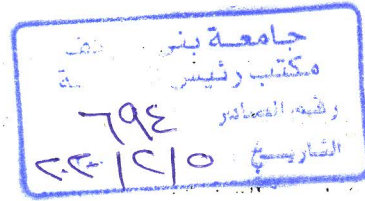 جامعة بنى
مكتب رئيس
رقم الصادر ٦٩٤
التاريخ ٢٠٢٠/٢/٥